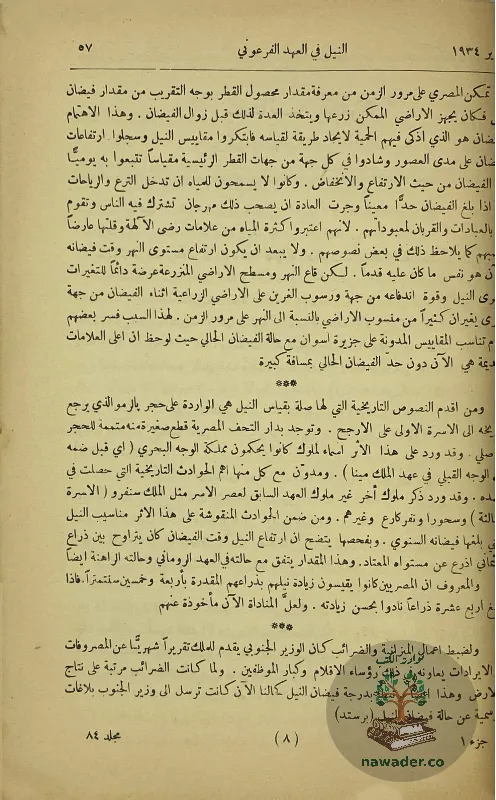 ير ١٩٣٤ النيل في العهد الفرعوني ٥٧
تمكن المصري على مرور الزمن من معرفة مقدار محصول القطر بوجه التقريب من مقدار فيضان
فكان يجهز الاراضي الممكن زرعها ويتخذ العدة لذلك قبل زوال الفيضان . وهذا الاهتمام
ضان هو الذي اذكى فيهم الحمية لايجاد طريقة لقياسه فابتكروا مقاييس النيل وسجلوا ارتفاعات
ضان على مدى العصور وشادوا في كل جهة من جهات القطر الرئيسية مقياساً تتبعوا به يوميًّا
الفيضان من حيث الارتفاع والانخفاض . وكانوا لا يسمحون للمياه ان تدخل الترع والرياحات
اذا بلغ الفيضان حدًّا معيناً وجرت العادة ان يصحب ذلك مهرجان تشترك فيه الناس وتقوم
بالعبادات والقربان لمعبوداتهم . لانهم اعتبروا كثرة المياه من علامات رضى الآلهة وقلتها عارضاً
يبهم كما يلاحظ ذلك في بعض نصوصهم . ولا يبعد ان يكون ارتفاع مستوى النهر وقت فيضانه
ن هو نفس ما كان عليه قدماً . لكن قاع النهر ومسطح الاراضي المنزرعة عرضة دائماً للتغيرات
رى النيل وقوة اندفاعه من جهة ورسوب الغرين على الاراضي الزراعية اثناء الفيضان من جهة
رى يغيران كثيراً من منسوب الاراضي بالنسبة الى النهر على مرور الزمن . لهذا السبب فسر بعضهم
م تناسب المقاييس المدونة على جزيرة اسوان مع حالة الفيضان الحالي حيث لوحظ ان اعلى العلامات
ديمة هي الآن دون حدّ الفيضان الحالي بمسافة كبيرة
***
ومن اقدم النصوص التاريخية التي لها صلة بقياس النيل هي الواردة على حجر بالرمو الذي يرجع
يخه الى الاسرة الاولى على الارجح . وتوجد بدار التحف المصرية قطع صغيرة منه متممة للحجر
صلي . وقد ورد على هذا الاثر اسماء لملوك كانوا يحكمون مملكة الوجه البحري ( اي قبل ضمه
الوجه القبلي في عهد الملك مينا ) . ومدوّن مع كل منها اهم الحوادث التاريخية التي حصلت في
ده . وقد ورد ذكر ملوك أخر غير ملوك العهد السابق لعصر الاسر مثل الملك سنفرو ( الاسرة
الثة ) وسحورا ونفركارع وغيرهم . ومن ضمن الحوادث المنقوشة على هذا الاثر مناسيب النيل
ي بلغها فيضانه السنوي . وبفحصها يتضح ان ارتفاع النيل وقت الفيضان كان يتراوح بين ذراع
ثماني اذرع عن مستواه المعتاد . وهذا المقدار يتفق مع حالته في العهد الروماني وحالته الراهنة ايضاً
والمعروف ان المصريين كانوا يقيسون زيادة نيلهم بذراعهم المقدرة بأربعة وخمسين سنتمتراً . فاذا
غ اربع عشرة ذراعاً نادوا بحسن زيادته . ولعلّ المناداة الآن مأخوذة عنهم
***
ولضبط اعمال الميزانية والضرائب كان الوزير الجنوبي يقدم للملك تقريراً شهريًّا عن المصروفات
الايرادات يعاونه في ذلك رؤساء الاقلام وكبار الموظفين . ولما كانت الضرائب مرتبة على نتاج
لارض وهذا بدرجة فيضان النيل كحالنا الآن كانت ترسل الى وزير الجنوب بلاغات
سمية عن حالة فيضان النيل (برستد)
جزء ١ ( ٨ ) مجلد ٨٤
نوادر الكتب
nawader.co